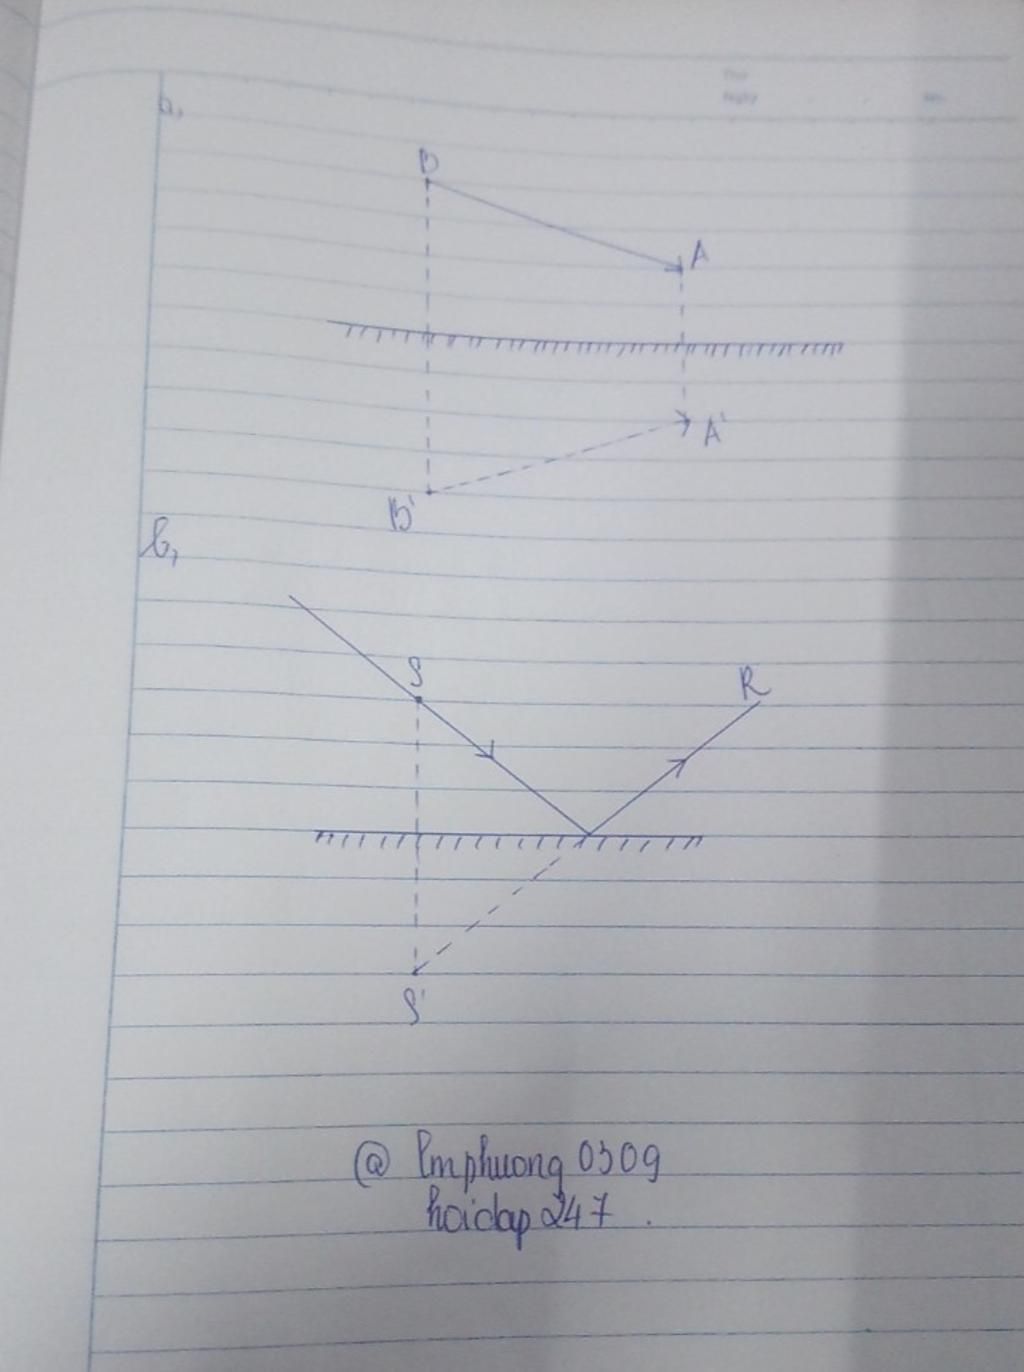 a,
B
A
A'
B'
b,
S
R
S'
@ lmphuong 0309
hoidap247.